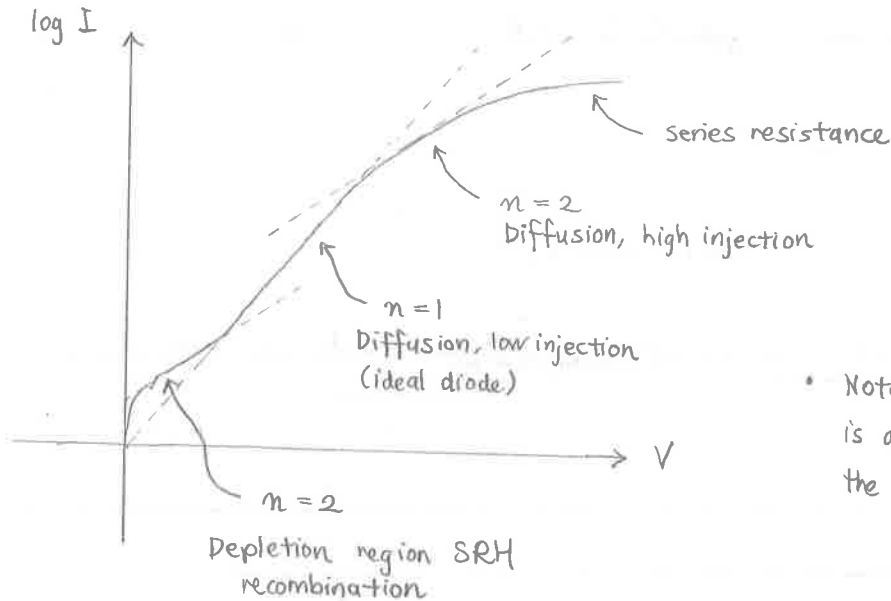 log I
series resistance
n = 2
Diffusion, high injection
n = 1
Diffusion, low injection
(ideal diode)
• Not
is a
the
V
n = 2
Depletion region SRH
recombination